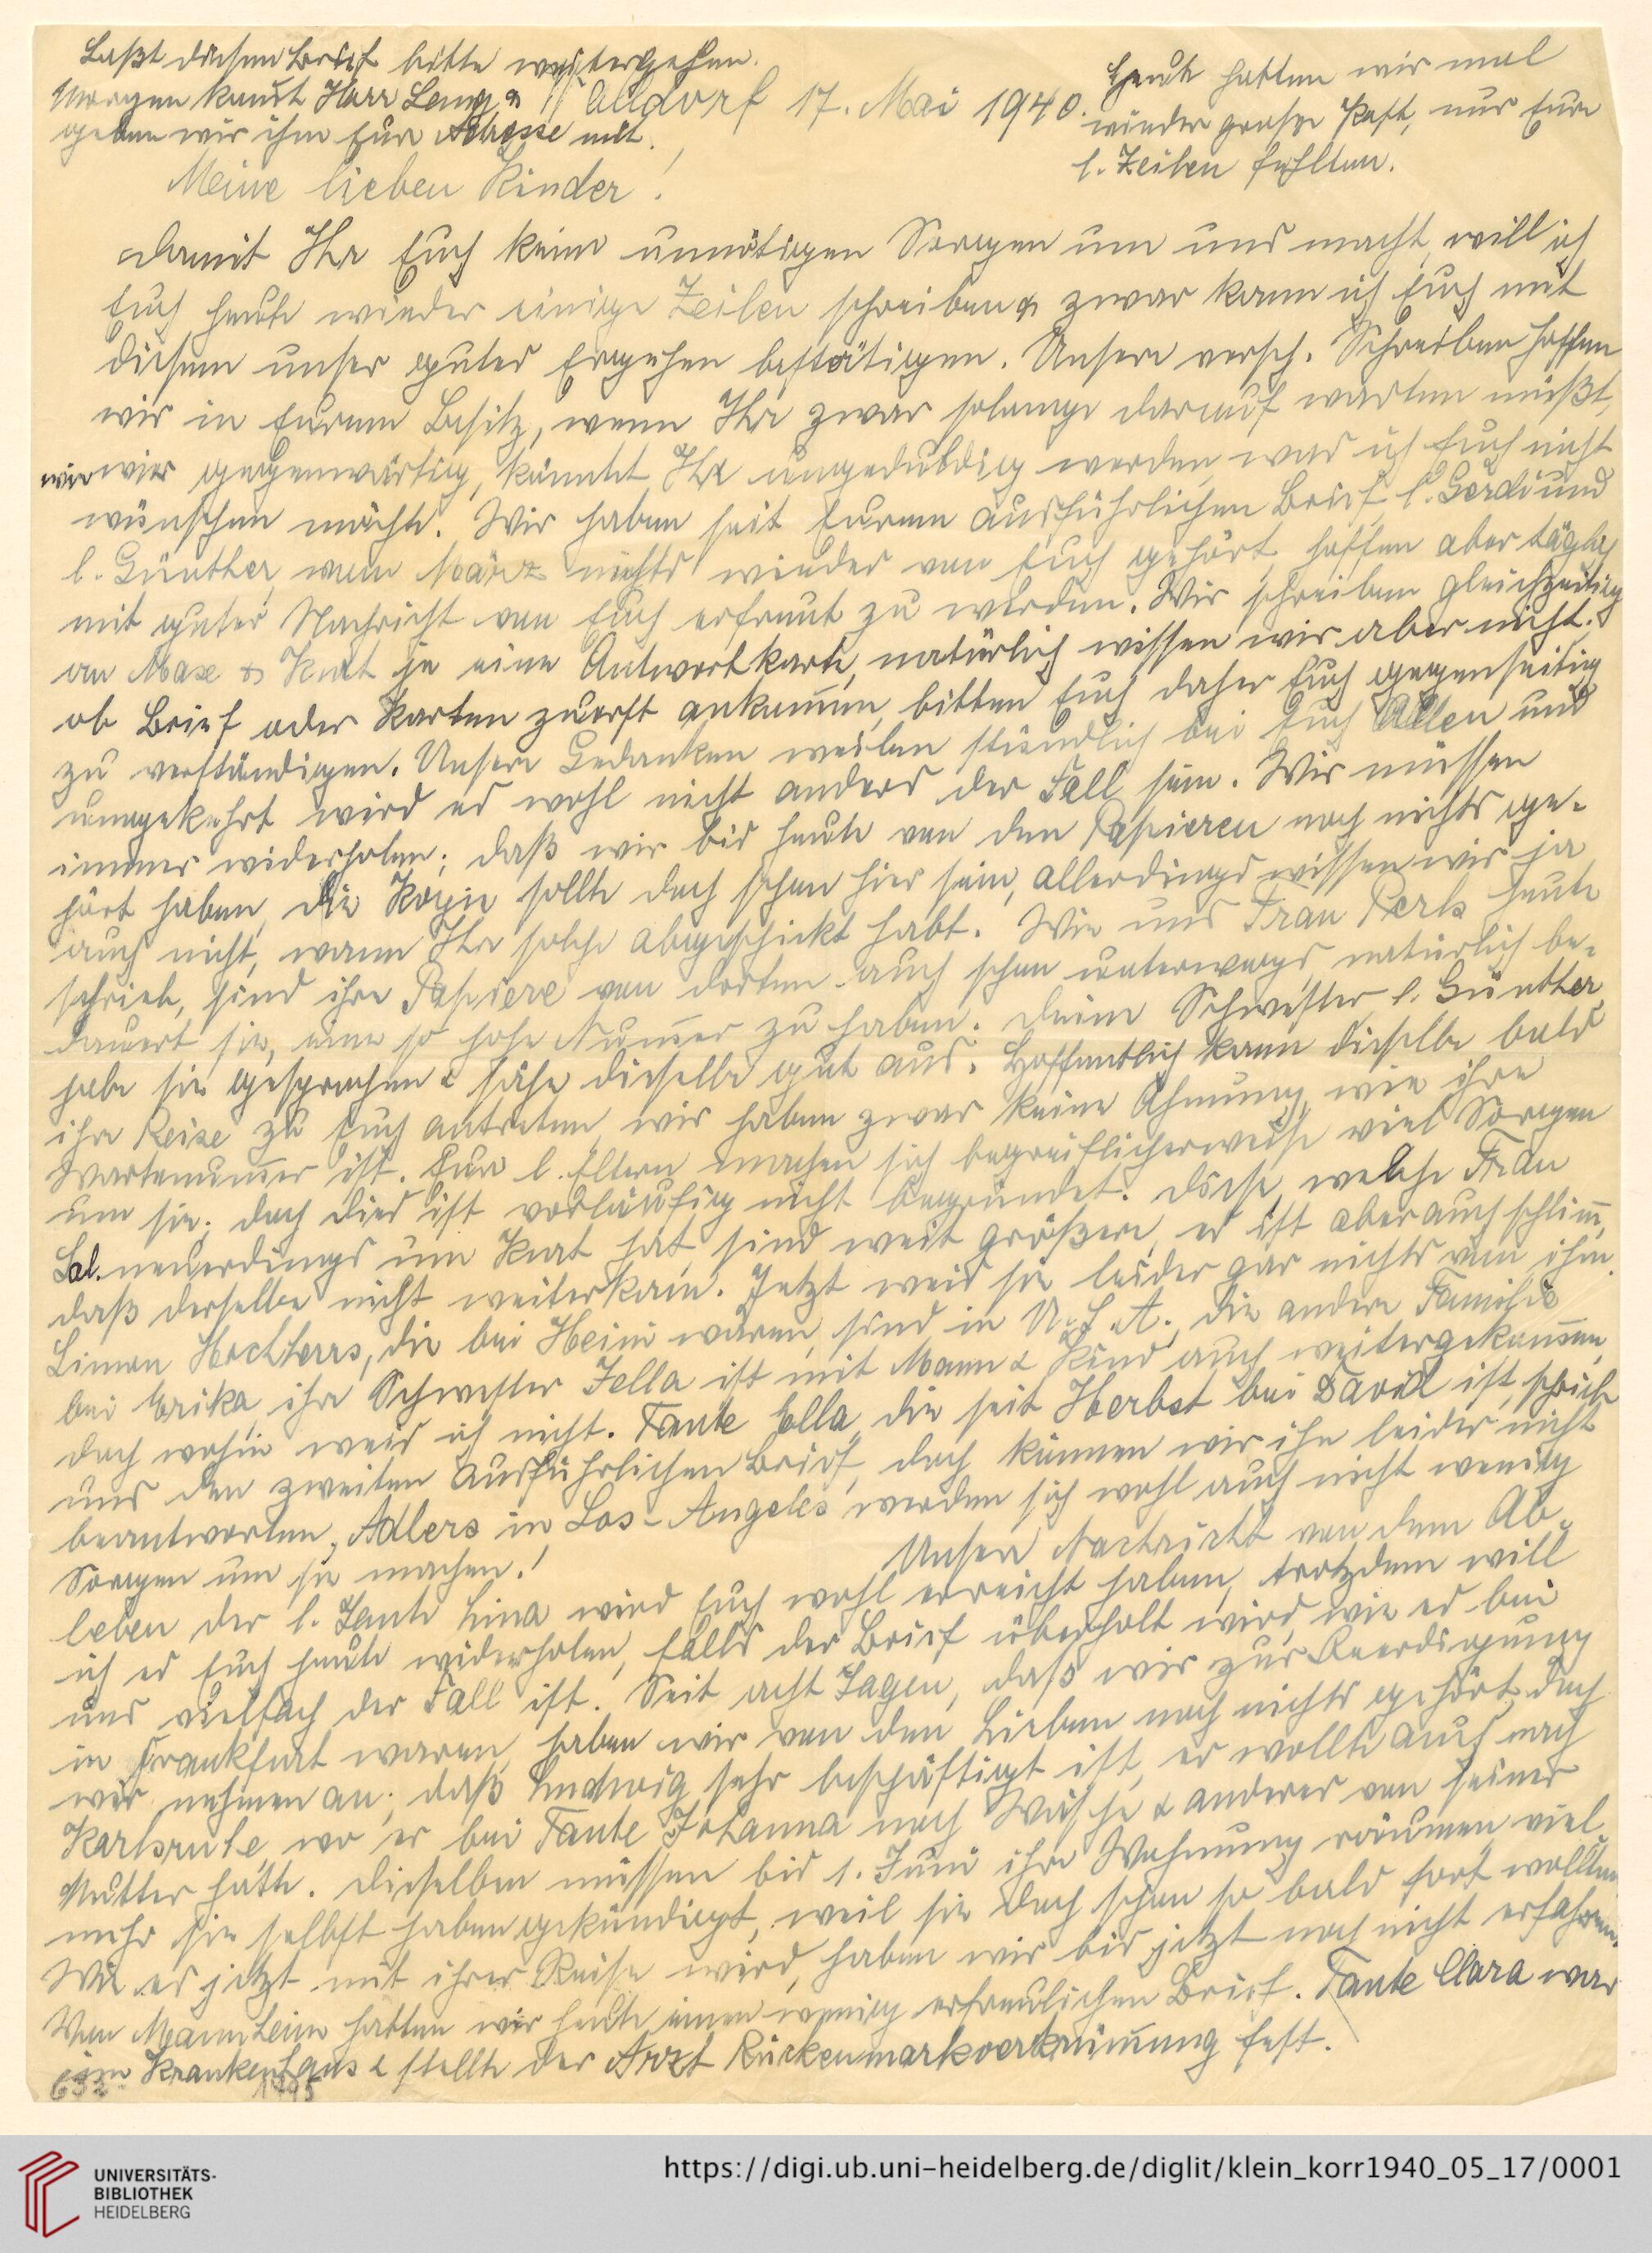 Laßt diesen Brief bitte weitergehen.
Morgen kommt Herr Lang &
geben wir ihm Eure Adresse mit.
Walldorf 17. Mai 1940.
Heute hatten wir mal
wieder große Post, nur Eure
l. Zeilen fehlten.
Meine lieben Kinder!
Damit Ihr Euch keine unnötigen Sorgen um uns macht, will ich
Euch heute wieder einige Zeilen schreiben & zwar kann ich Euch mit
diesem unser gutes Ergehen bestätigen. Unsere versch. Schreiben hoffen
wir in Eurem Besitz, wenn Ihr zwar solange darauf warten müßt,
wie wir gegenwärtig, könntet Ihr ungeduldig werden, was ich Euch nicht
wünschen möchte. Wir haben seit Eurem ausführlichen Brief l. Gerdi und
l. Günther, vom März nichts wieder von Euch gehört, hoffen aber täglich
mit guter Nachricht von Euch erfreut zu werden. Wir schreiben gleichzeitig
an Maxe & Kurt je eine Antwortkarte, natürlich wissen wir aber nicht,
ob Brief oder Karten zuerst ankom̅en, bitten Euch daher Euch gegenseitig
zu verständigen. Unsere Gedanken weilen stündlich bei Euch Allen und
umgekehrt wird es wohl nicht anders der Fall sein. Wir müssen
immer widerholen; daß wir bis heute von den Papieren noch nichts ge-
hört haben, die Kopie sollte doch schon hier sein, allerdings wissen wir ja
auch nicht, wann Ihr solche abgeschickt habt. Wie uns Frau Perls heute
schrieb, sind ihre Papiere von dorten auch schon unterwegs, natürlich be-
dauert sie, eine so hohe Num̅er zu haben. Deine Schwester l. Günther,
habe sie gesprochen & sähe dieselbe gut aus. Hoffentlich kann dieselbe bald
ihre Reise zu Euch antreten, wir haben zwar keine Ahnung, wie ihre
Wartenum̅er ist. Eure l. Eltern machen sich begreiflicherweise viel Sorgen
um sie, doch dies ist vorläufig nicht begründet. Diese, welche Frau
Sal. neuerdings um Kurt hat, sind weit größere, es ist aber auch schlim̅,
daß derselbe nicht weiterkam. Jetzt weis sie leider gar nichts von ihm.
Simon Hochherrs, die bei Heini waren, sind in U.S.A., die andere Familie
bei Erika, ihre Schwester Jella ist mit Mann & Kind auch weitergekom̅en,
doch wohin weis ich nicht. Tante Ella, die seit Herbst bei David ist, schrieb
uns den zweiten ausführlichen Brief, doch können wir ihn leider nicht
beantworten. Adlers in Los-Angeles werden sich wohl auch nicht wenig
Sorgen um sie machen!
Unsere Nachricht von dem Ab-
leben der l. Tante Lina wird Euch wohl erreicht haben, trotzdem will
ich es Euch heute widerholen, falls der Brief überholt wird, wie es bei
uns vielfach der Fall ist. Seit acht Tagen, daß wir zur Beerdigung
in Frankfurt waren, haben wir von den Lieben noch nichts gehört, doch
wir nehmen an; daß Ludwig sehr beschäftigt ist, er wollte auch nach
Karlsruhe, wo er bei Tante Johanna noch Wäsche & anderes von seiner
Mutter hatte. Dieselben müssen bis 1. Juni ihre Wohnung räumen, viel
mehr sie selbst haben gekündigt, weil sie doch schon so bald fort wollten.
Wie es jetzt mit ihrer Reise wird, haben wir bis jetzt noch nicht erfahren.
Von Mannheim hatten wir heute einen wenig erfreulichen Brief. Tante Clara war
im Krankenhaus & stellte der Arzt Rückenmarkverkrüm̅ung fest.
UNIVERSITÄTS-
BIBLIOTHEK
HEIDELBERG
https://digi.ub.uni-heidelberg.de/diglit/klein_korr1940_05_17/0001